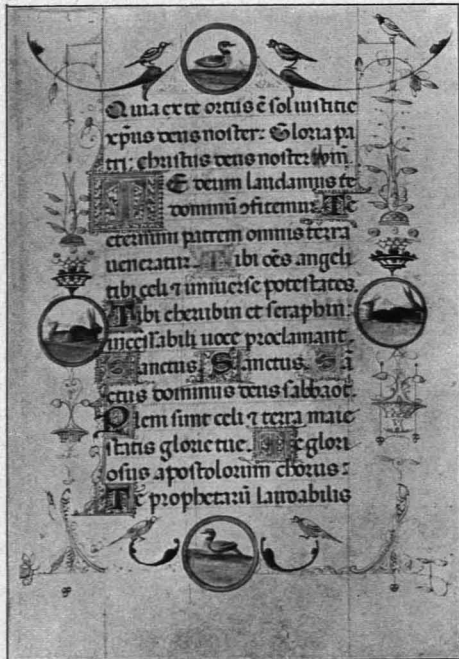 Quia ex te ortus ē sol iusticie
xp̄us deus noster: Gloria pa
tri: christus deus noster
TE deum laudamus te
dominū ꝯfitemur. Te
eternum patrem omnis terra
ueneratur. Tibi oēs angeli
tibi celi ⁊ uniuerse potestates.
Tibi cherubin et seraphin:
incessabili uoce proclamant.
Sanctus. Sanctus. Sā
ctus dominus deus sabbaot.
Pleni sunt celi ⁊ terra maie
statis glorie tue. Te glori
osus apostolorum chorus:
Te prophetarū laudabilis